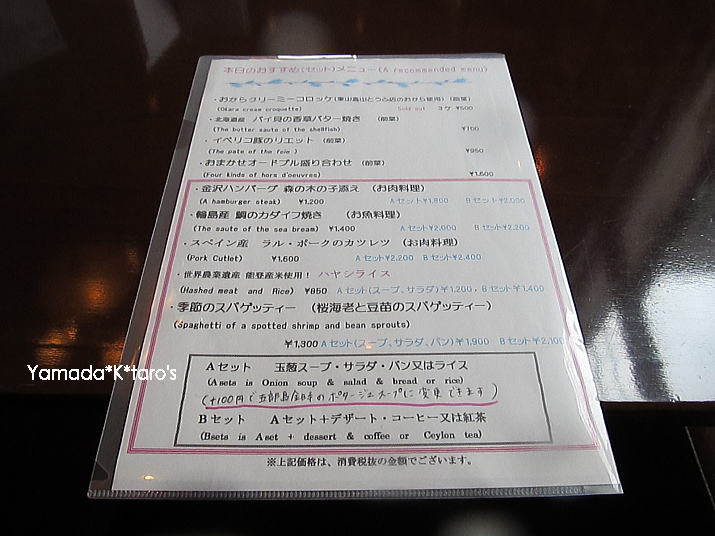 本日のおすすめ(セット)メニュー(A recommended menu)
・おからクリーミーコロッケ(東山高山とうふ店のおから使用)(前菜)
(Okara cream croquette) Sold out 3ケ ¥500
・北海道産 バイ貝の香草バター焼き (前菜)
(The butter saute of the shellfish) ¥700
・イベリコ豚のリエット (前菜)
(The pate of the foie) ¥950
・おまかせオードブル盛り合わせ (前菜)
(Four kinds of hors d'oeuvres) ¥1,600
・金沢ハンバーグ 森の木の子添え (お肉料理)
(A hamburger steak) ¥1,200 Aセット¥1,800 Bセット¥2,000
・輪島産 鯛のカダイフ焼き (お魚料理)
(The saute of the sea bream) ¥1,400 Aセット¥2,000 Bセット¥2,200
・スペイン産 ラル・ポークのカツレツ (お肉料理)
(Pork Cutlet) ¥1,600 Aセット¥2,200 Bセット¥2,400
・世界農業遺産 能登産米使用! ハヤシライス
(Hashed meat and Rice) ¥850 Aセット(スープ、サラダ)¥1,200・Bセット¥1,400
・季節のスパゲッティー (桜海老と豆苗のスパゲッティー)
(Spaghetti of a spotted shrimp and bean sprouts)
¥1,300 Aセット(スープ、サラダ、パン)¥1,900 Bセット¥2,100
Aセット 玉葱スープ・サラダ・パン又はライス
(Asets is Onion soup & salad & bread or rice)
(+100円で五郎島金時のポタージュスープに変更できます)
Bセット Aセット+デザート・コーヒー又は紅茶
(Bsets is Aset + dessert & coffee or Ceylon tea)
※上記価格は、消費税抜の金額でございます。
Yamada*K*taro's